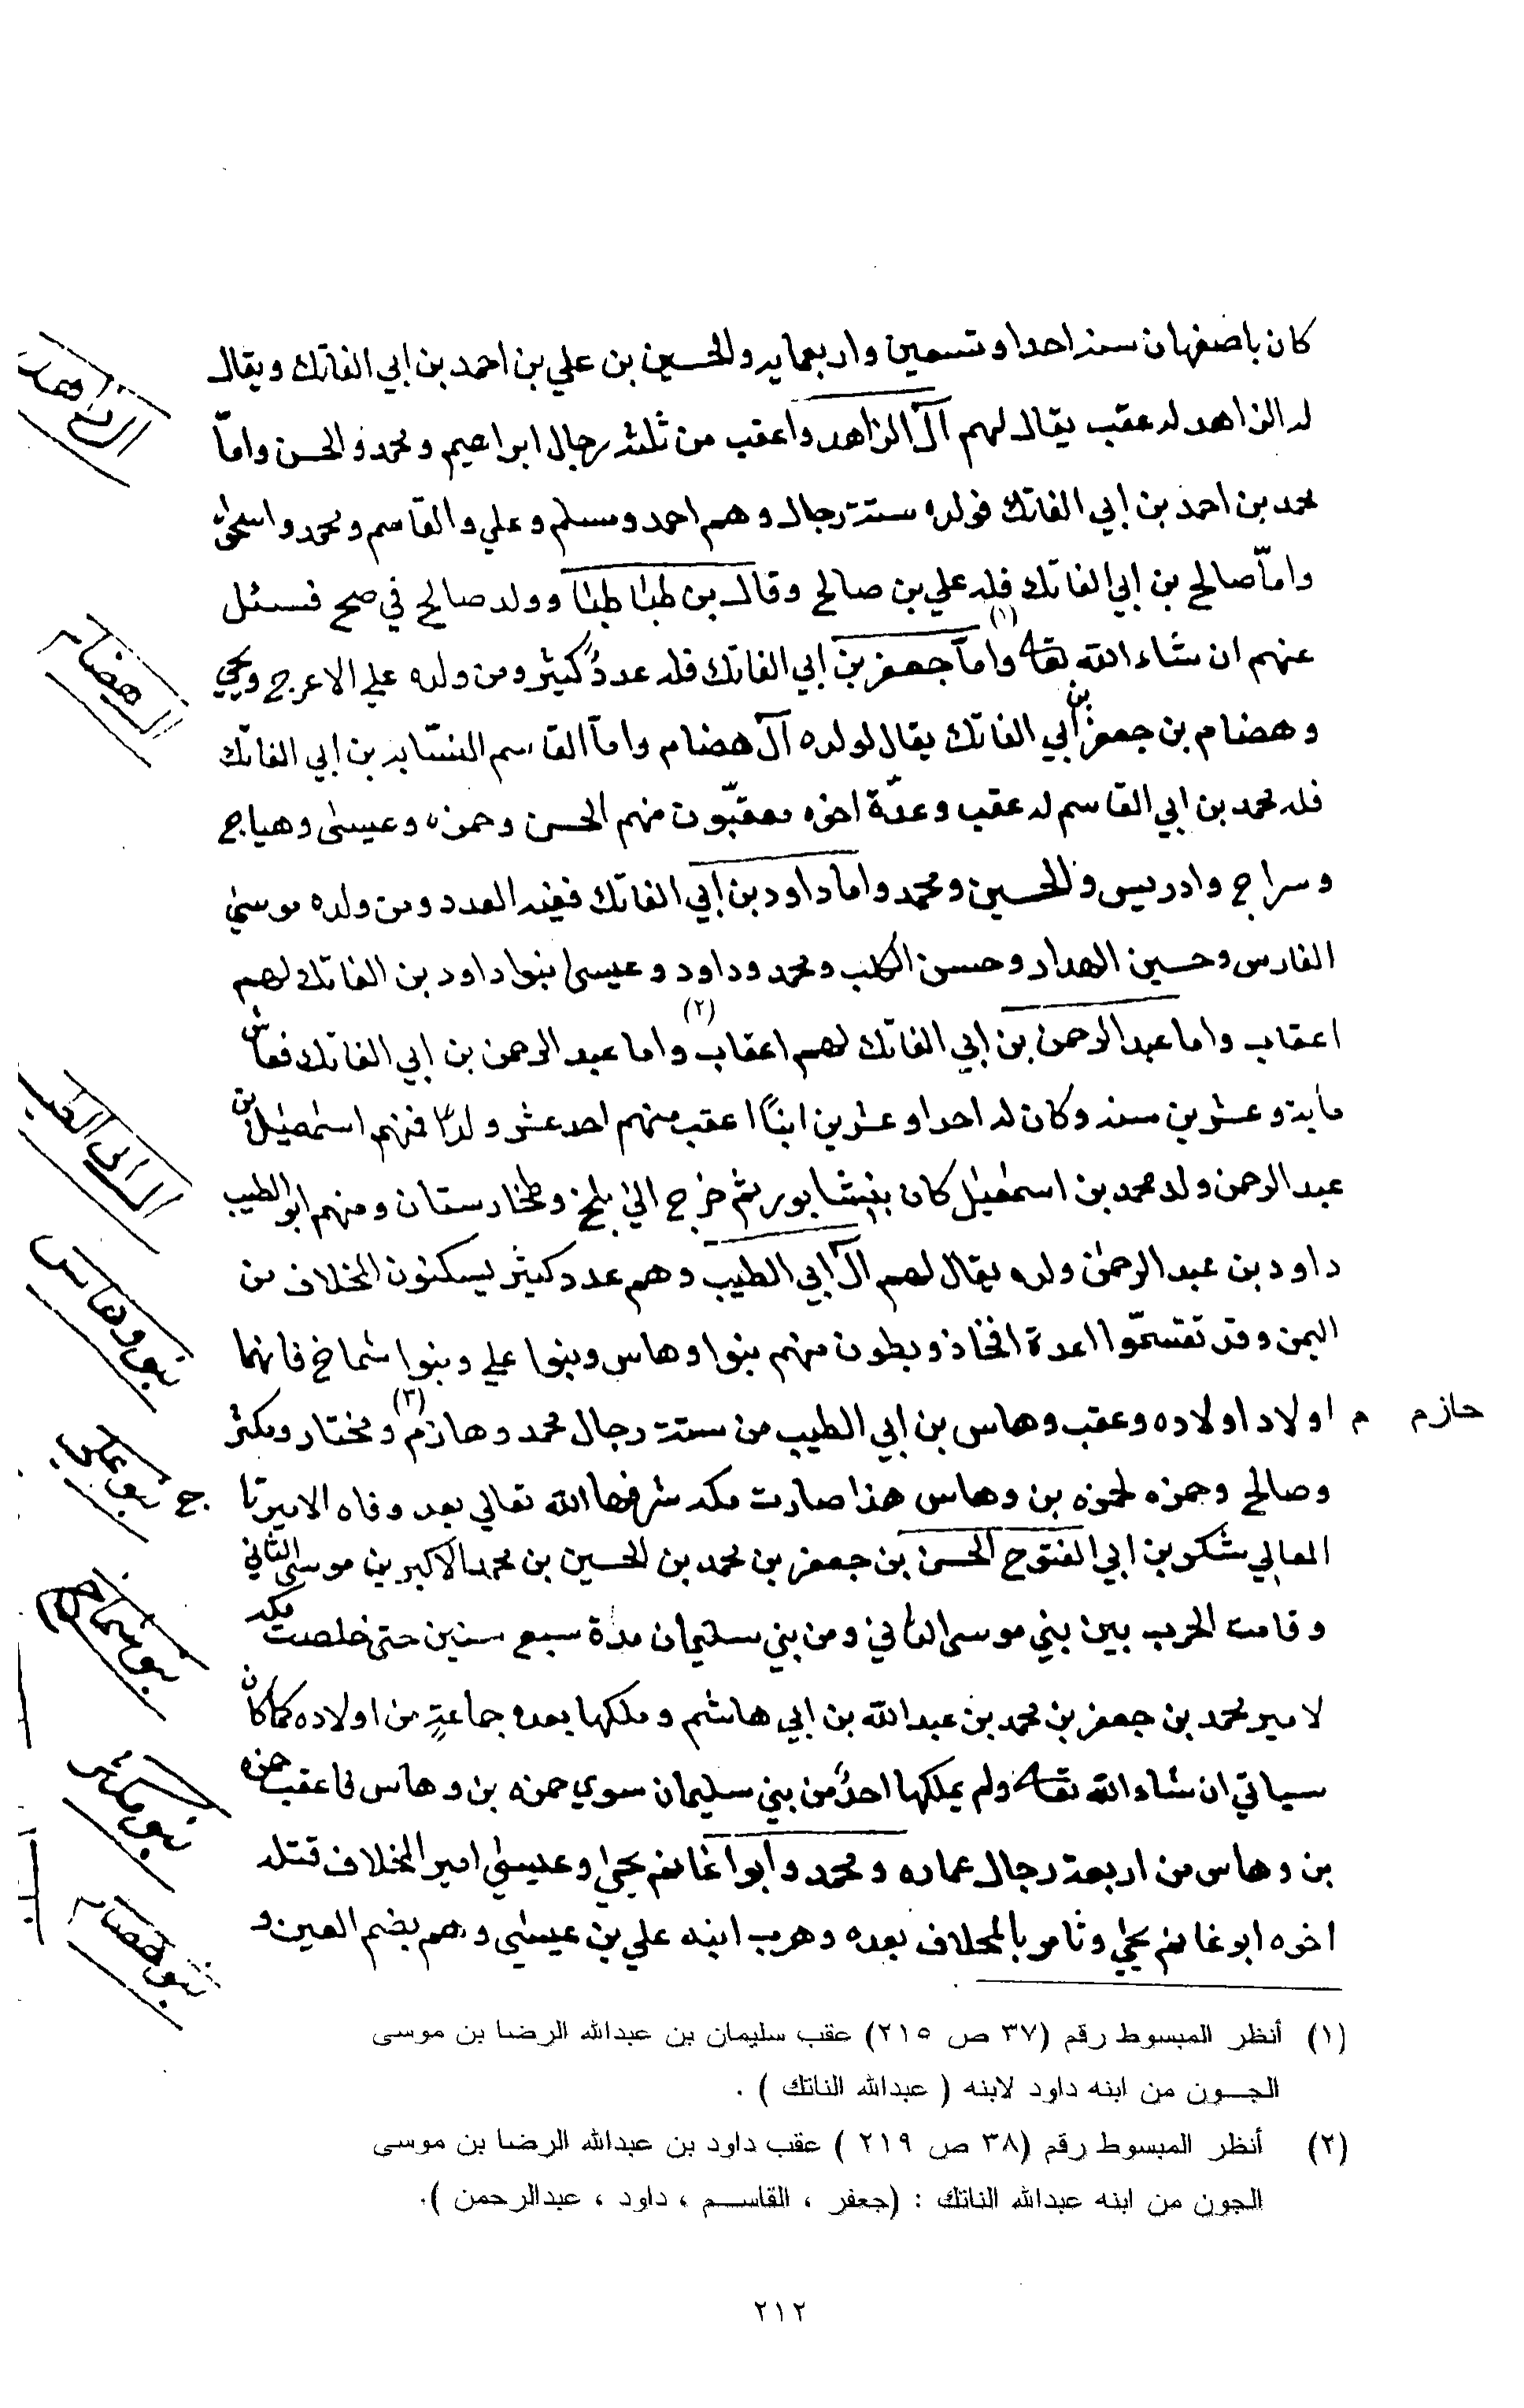 كان باصفهان سنه احدا وتسعين واربعمايه والحسين بن علي بن احمد بن ابي الفاتك ويقال
له الزاهد له عقب يقال لهم آل الزاهد واعقب من ثلثه رجال ابراهيم ومحمد والحسن وامّا
محمد بن احمد بن ابي الفاتك فولده ستة رجال وهم احمد ومسلم وعلي والقاسم ومحمد واسحٰق
وامّا صالح بن ابي الفاتك فله علي بن صالح وقال بن طباطبا وولد صالح في صح فسئل
عنهم ان شاء الله تعالى (١) وامّا جعفر بن ابي الفاتك فله عددٌ كثير ومن ولده علي الاعرج ويحيى
وهضام بن جعفر بن ابي الفاتك يقال لولده آل هضام وامّا القاسم النسّابه بن ابي الفاتك
فله محمد بن ابي القاسم له عقب وعدّة اخوه معقّبون منهم الحسن وحمزه وعيسىٰ وهياج
وسراج وادريس والحسين ومحمد واما داود بن ابي الفاتك ففيه العدد ومن ولده موسىٰ
الفارس وحسين الهدار وحسن الكلب ومحمد وداود وعيسىٰ بنوا داود بن الفاتك لهم
اعقاب واما عبد الرحمن بن ابي الفاتك لهم اعقاب (٢) واما عبد الرحمن بن ابي الفاتك فعاش
مايه وعشرين سنه وكان له احدا وعشرين ابنًا اعقب منهم احد عشر ولدًا فمنهم اسمٰعيل بن
عبد الرحمن ولد محمد بن اسمٰعيل كان بنيشابور ثم خرج الىٰ بلخ وطخارستان ومنهم ابو الطيب
داود بن عبد الرحمٰن ولده يقال لهم آل ابي الطيب وهم عدد كثير يسكنون المخلاف من
اليمن وقد تقسمّوا اعدة افخاذ وبطون منهم بنوا وهاس وبنوا علي وبنوا شماخ فانهما
حازم م اولاد اولاده وعقب وهاس بن ابي الطيب من ستة رجال محمد وهازم (٣) ومختار ومكثر
وصالح وحمزه لحمزه بن وهاس هذا صارت مكه شرفها الله تعالي بعد وفاه الامير تا
المعالي شكر بن ابي الفتوح الحسن بن جعفر بن محمد بن الحسين بن محمد الاكبر بن موسى الثاني
وقامت الحرب بين بني موسى الثاني ومن بني سليمان مدة سبع سنين حتى خلصت مكه
لامير محمد بن جعفر بن محمد بن عبد الله بن ابي هاشم وملكها بعده جماعةٍ من اولاده كما كان
سياتي ان شاء الله تعالى ولم يملكها احدٌ من بني سليمان سوي حمزه بن وهاس فاعقب حمزه
بن وهاس من اربعة رجال عماره ومحمد وابوا غانم يحيٰ وعيسىٰ امير المخلاف قتله
اخوه ابو غانم يحيٰ وثامر بالمخلاف بعده وهرب ابنه علي بن عيسىٰ وهم بضم العين و
ال الزاهد
ال هضام
ال ابي الطيب
بنو وهاس
بنو علي
ج
بنو شماخ
بنو مكثر
بنو هضام
(١) أنظر المبسوط رقم (٣٧ ص ٢١٥) عقب سليمان بن عبدالله الرضا بن موسى
الجــون من ابنه داود لابنه ( عبدالله الناتك ) .
(٢) أنظر المبسوط رقم (٣٨ ص ٢١٩ ) عقب داود بن عبدالله الرضا بن موسى
الجون من ابنه عبدالله الناتك : (جعفر ، القاسـم ، داود ، عبدالرحمن ).
٢١٢